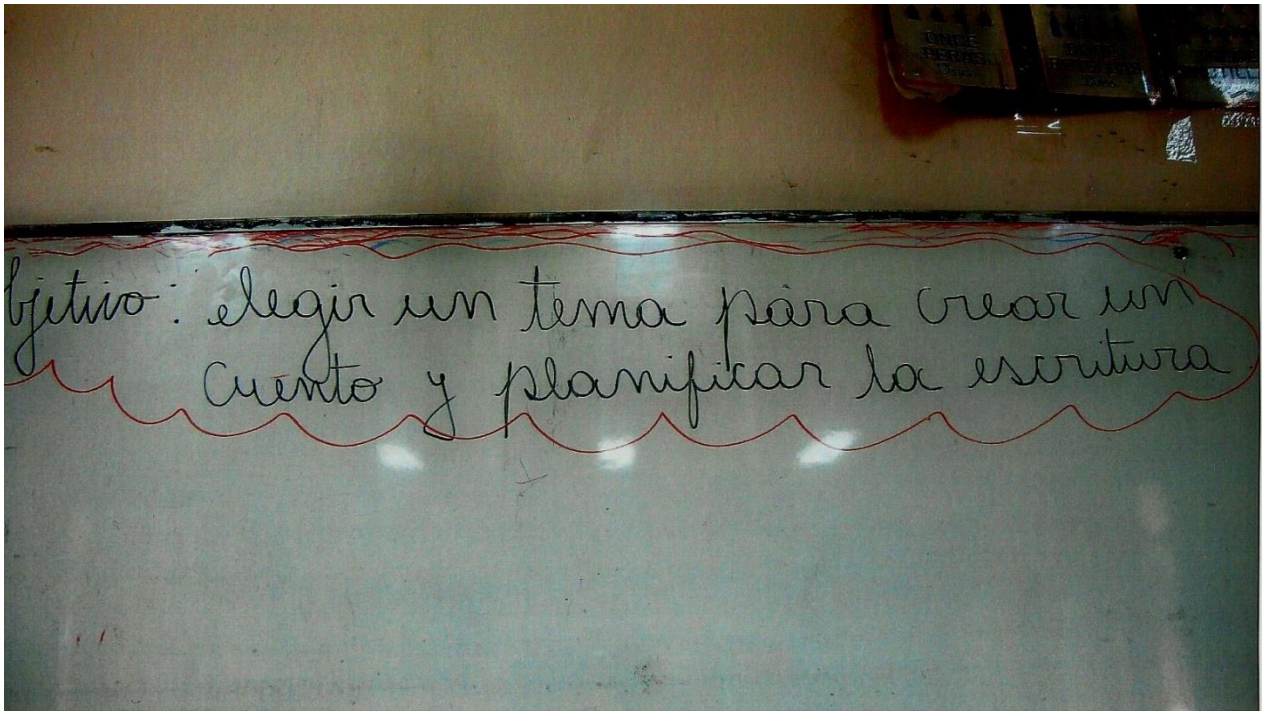 bjetivo: elegir un tema para crear un
cuento y planificar la escritura